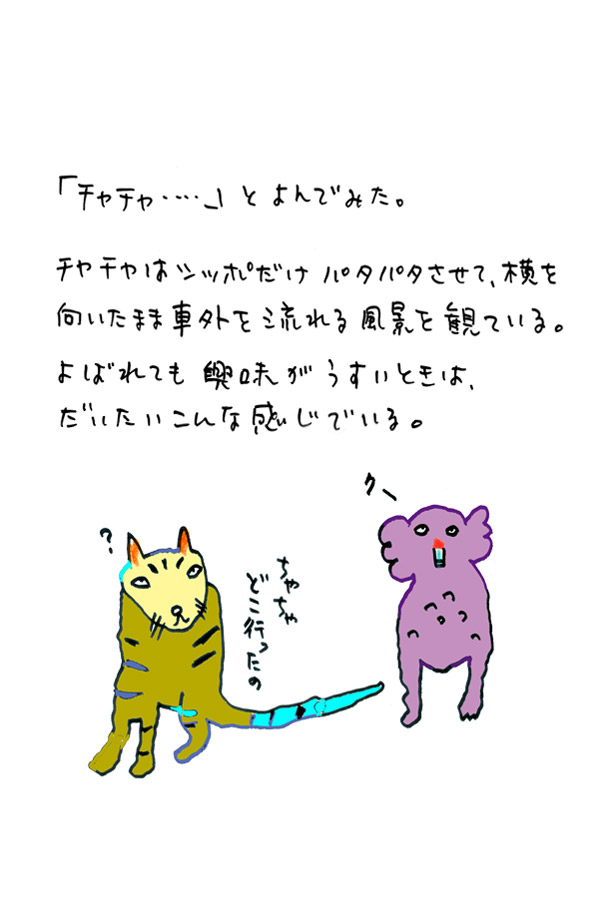 「チャチャ‥‥」とよんでみた。
チャチャはシッポだけ パタパタさせて、横を
向いたまま車外を流れる風景を観ている。
よばれても 興味がうすいときは、
だいたいこんな感じでいる。
クー
?
ちゃちゃ
どこ行ったの